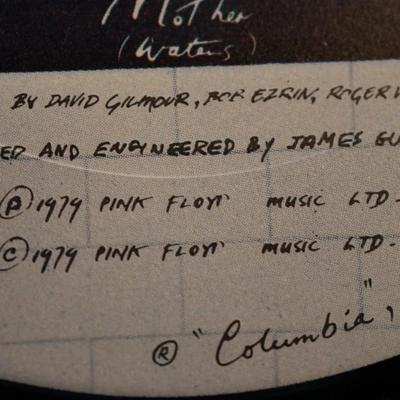 Mother
(Waters)
BY DAVID GILMOUR, BOB EZRIN, ROGER
AND ENGINEERED BY JAMES
Ⓟ 1979 PINK FLOYD MUSIC LTD.
Ⓒ 1979 PINK FLOYD MUSIC LTD.
® "Columbia",